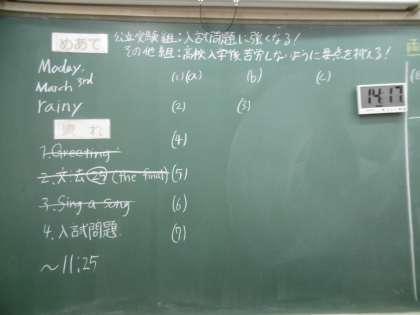 めあて
公立受験組：入試問題に強くなる！
その他組：高校入学後苦労しないように要点を押える！
Moday,
March 3rd
rainy
(1)(a) (b) (c)
(2) (3)
14:17
流れ
(4)
1. Greeting
2. 文法29 (the final)
(5)
3. Sing a song
(6)
4. 入試問題
(7)
〜11:25